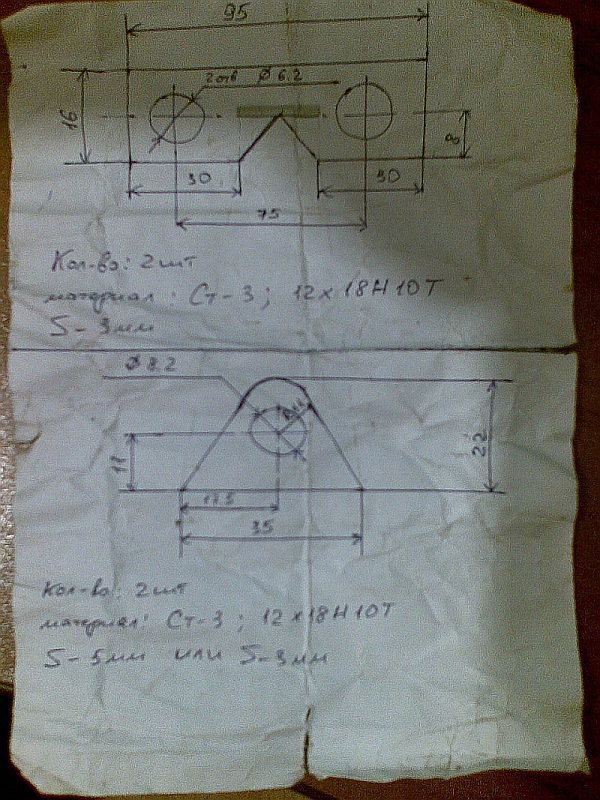 95
2 отв Ø 6.2
16
8
30
30
75
Кол-во: 2 шт
материал: Ст-3; 12х18Н10Т
S-3мм
Ø 8.2
11
22
17.5
35
Кол-во: 2 шт
материал: Ст-3; 12х18Н10Т
S-5мм или S-3мм